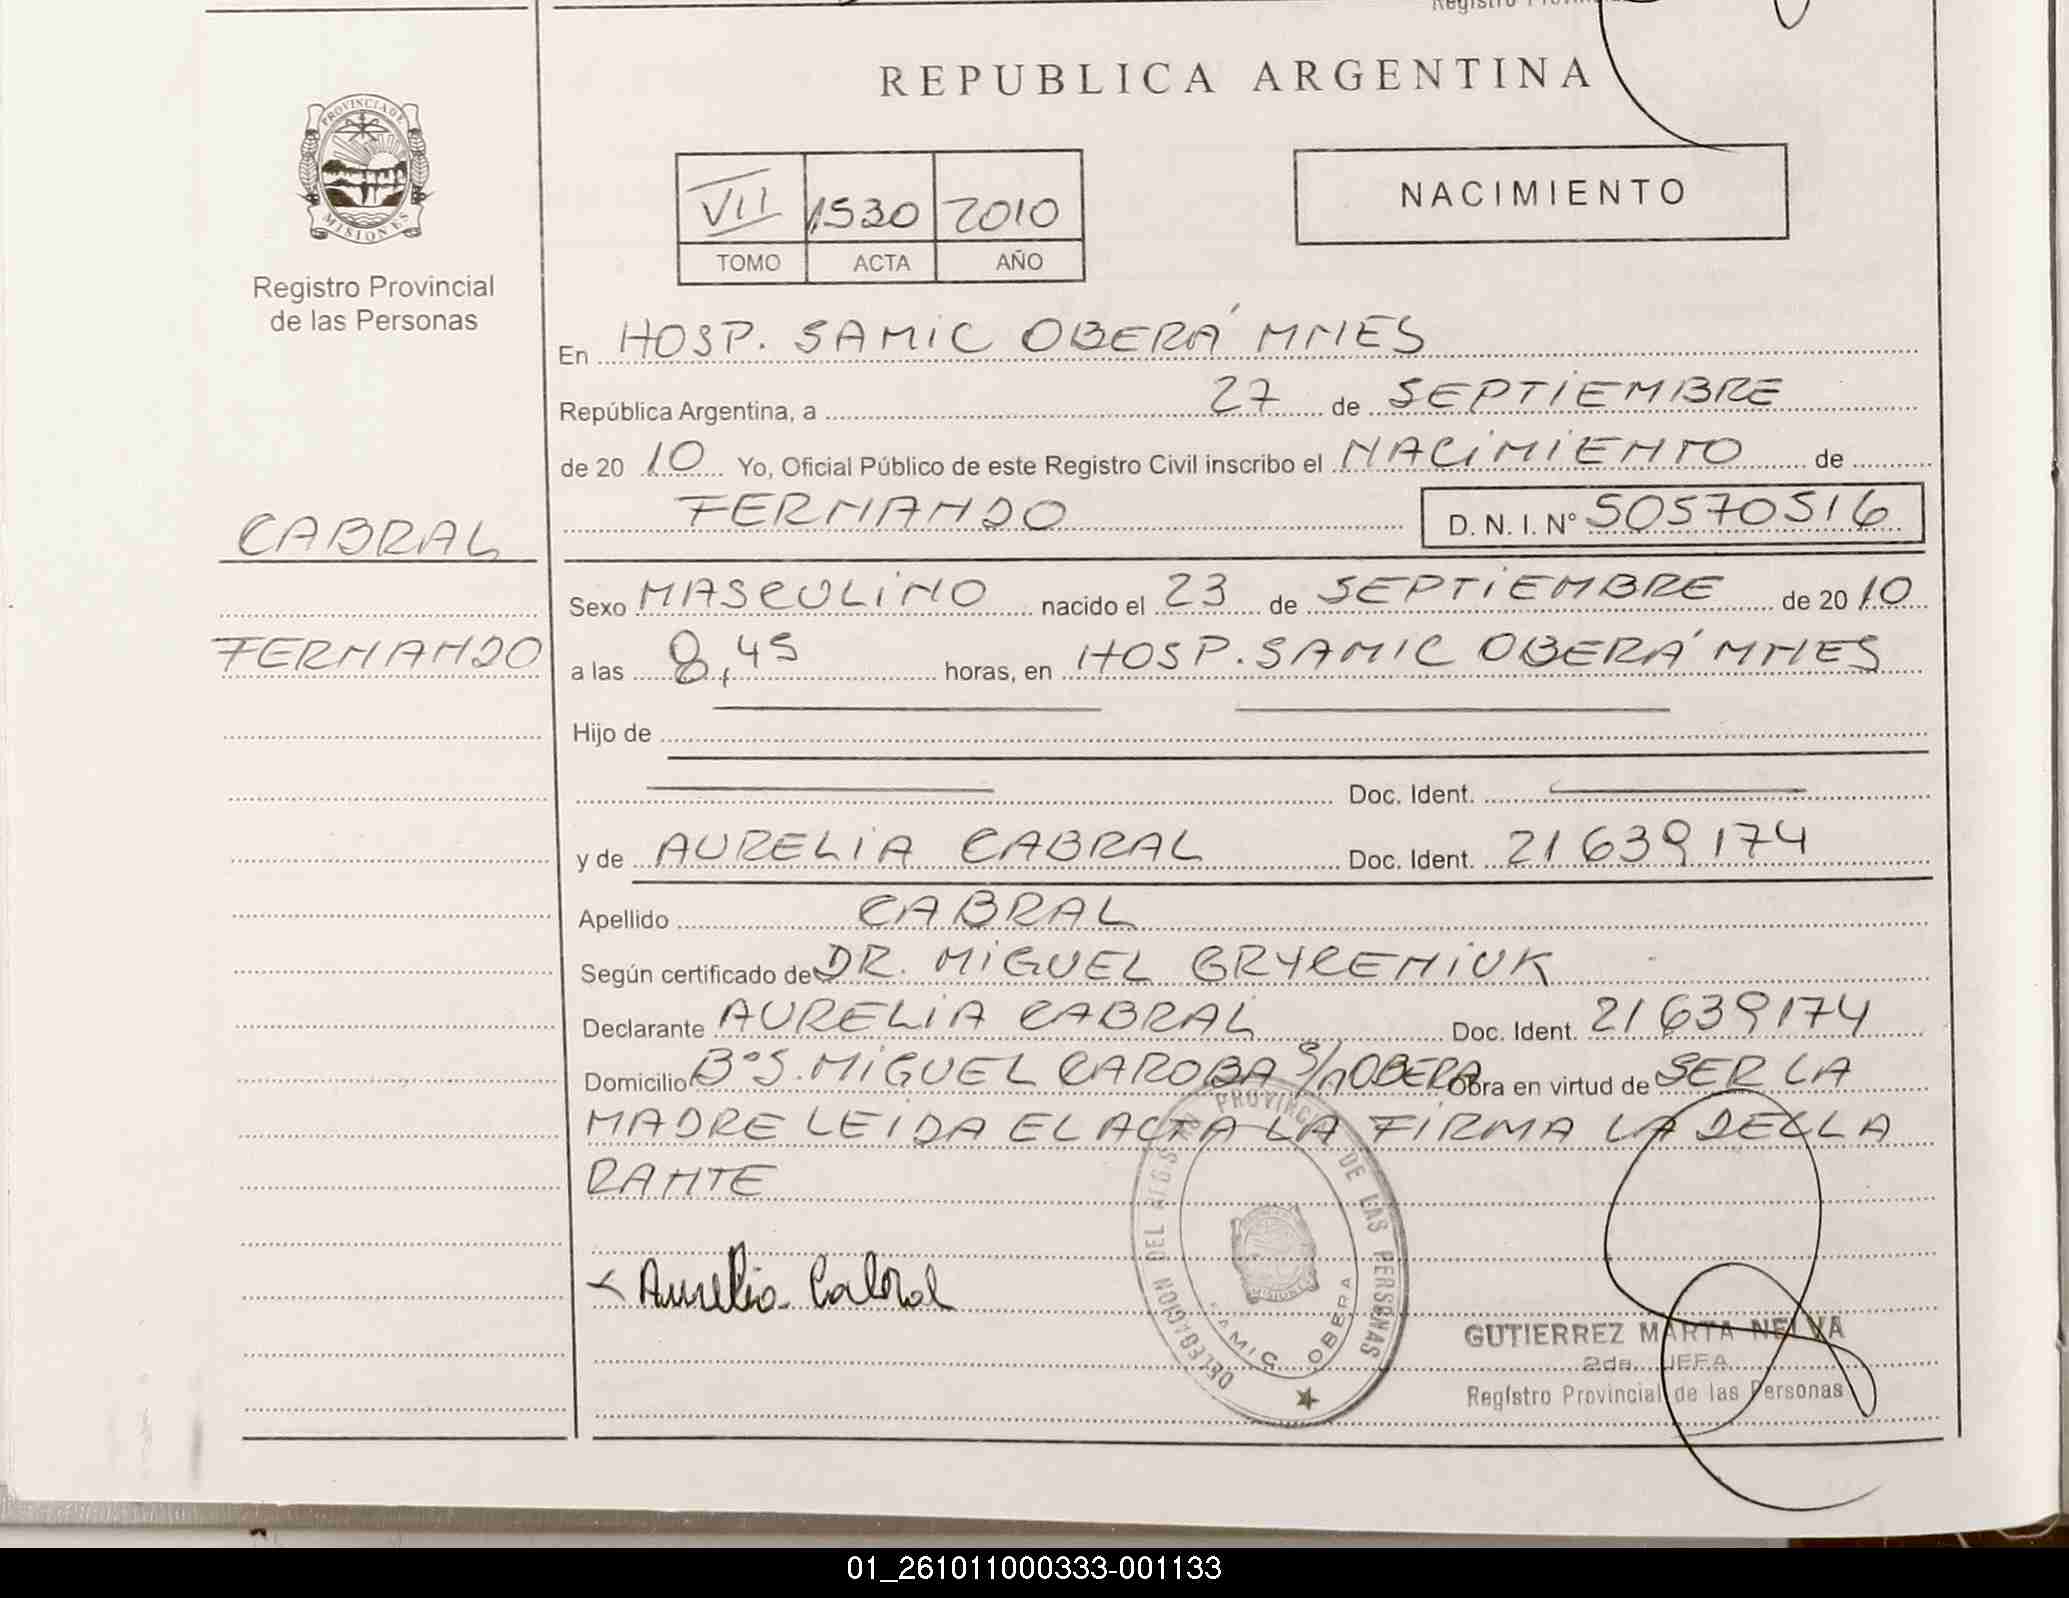 REPUBLICA ARGENTINA
PROVINCIA DE
MISIONES
Registro Provincial
de las Personas
VII 1530 2010
TOMO ACTA AÑO
NACIMIENTO
En HOSP. SAMIC OBERÁ MNES
República Argentina, a 27 de SEPTIEMBRE
de 20 10 Yo, Oficial Público de este Registro Civil inscribo el NACIMIENTO de
FERNANDO D. N. I. N° 50570516
CABRAL
FERNANDO
Sexo MASCULINO nacido el 23 de SEPTIEMBRE de 20 10
a las 8,45 horas, en HOSP. SAMIC OBERÁ MNES
Hijo de
Doc. Ident.
y de AURELIA CABRAL Doc. Ident. 21639174
Apellido CABRAL
Según certificado de DR. MIGUEL GRYCENIUK
Declarante AURELIA CABRAL Doc. Ident. 21639174
Domicilio B° S. MIGUEL CAROBA S/n OBERA Obra en virtud de SER LA
MADRE LEIDA EL ACTA LA FIRMA LA DECLA
RANTE
Aurelia Cabral
DELEGACION DEL REG.S PROVINCIAL DE LAS PERSONAS
SAMIC OBERA
MISIONES
GUTIERREZ MARTA NELVA
2da. JEFA
Registro Provincial de las Personas
01_261011000333-001133